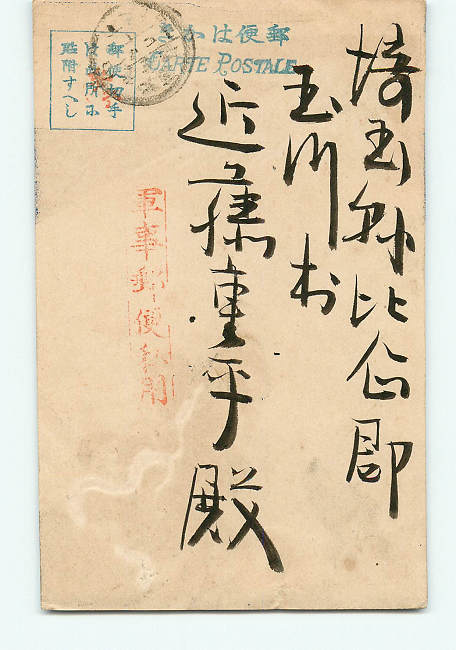 郵便はかき
CARTE POSTALE
郵便切手
は此所に
貼附すへし
埼玉縣比企郡
玉川村
近藤重平殿
軍事郵便